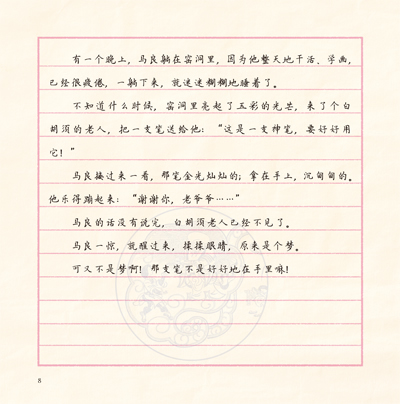 有一个晚上，马良躺在窑洞里，因为他整天地干活、学画，
已经很疲倦，一躺下来，就迷迷糊糊地睡着了。
不知道什么时候，窑洞里亮起了五彩的光芒，来了个白
胡须的老人，把一支笔送给他：“这是一支神笔，要好好用
它！”
马良接过来一看，那笔金光灿灿的；拿在手上，沉甸甸的。
他乐得蹦起来：“谢谢你，老爷爷……”
马良的话没有说完，白胡须老人已经不见了。
马良一惊，就醒过来，揉揉眼睛，原来是个梦。
可又不是梦啊！那支笔不是好好地在手里嘛！
8